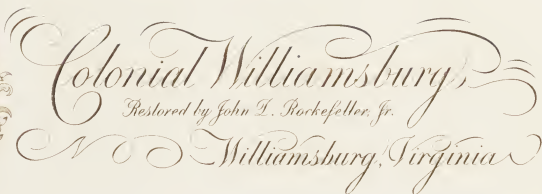 Colonial Williamsburg
Restored by John D. Rockefeller, Jr.
Williamsburg, Virginia